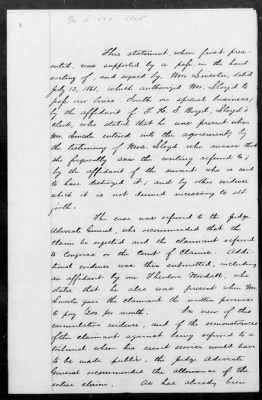 This statement, when first pre-
sented, was supported by a pass, in the hand
writing of, and signed by, Mr. Lincoln, dated
July 13, 1861, which authorized Mr. Lloyd to
pass our lines South on special business;
by the affidavit of H. S. Boyd, Lloyd's
clerk, who stated that he was present when
Mr. Lincoln entered into the agreement; by
the testimony of Mrs. Lloyd who swears that
she frequently saw the writing referred to;
by the affidavit of the servant who is said
to have destroyed it; and by other evidence
which it is not deemed necessary to set
forth.
The case was referred to the Judge
Advocate General, who recommended that the
claim be rejected and the claimant referred
to Congress or the Court of Claims. Addi-
tional evidence was then submitted, including
an affidavit by one Theodore Woodall, who
states that he also was present when Mr.
Lincoln gave the claimant the written promise
to pay 200 per month. In view of this
cumulative evidence, and of the remonstrances
of the claimant against being referred to a
tribunal where his secret services would have
to be made public, the Judge Advocate
General recommended the allowance of the
entire claim. As has already been